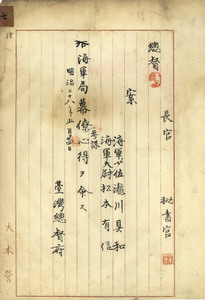 總督
長官
秘書官
案
海軍少佐瀧川具和
海軍大尉松本有信
参謀
海軍局幕僚心得ヲ命ス
明治二十八年五月
臺灣總督府
大本營